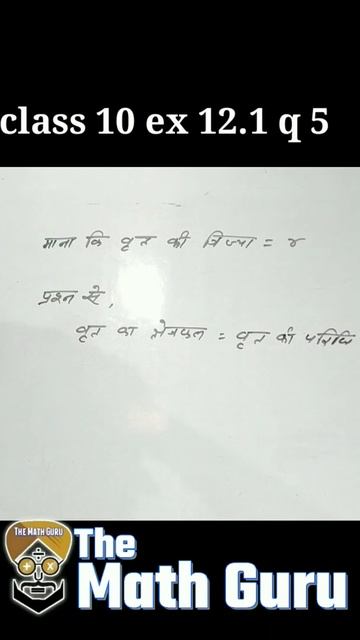 class 10 ex 12.1 q 5
माना कि वृत की त्रिज्या = r
प्रश्न से,
वृत का क्षेत्रफल = वृत की परिधि
THE MATH GURU
The
Math Guru